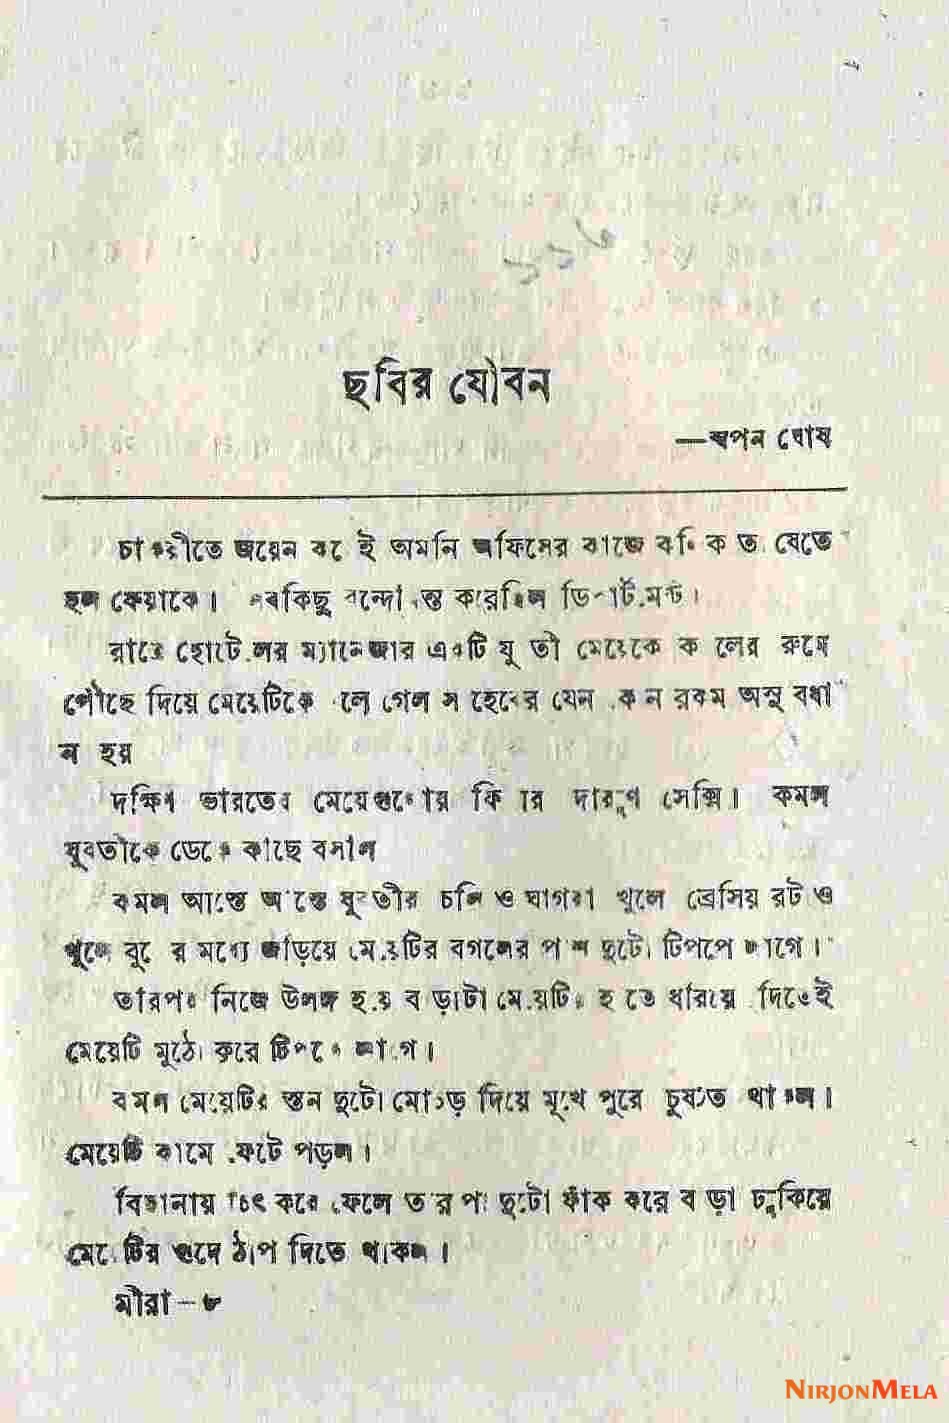 ১১৬
ছবির যৌবন
—স্বপন ঘোষ
চাকরীতে জয়েন করেই অমনি অফিসের কাজে যেতে
হল কেয়াকে। সবকিছু বন্দোবস্ত করেছিল ডিপার্টমেন্ট।
রাতে হোটেলের ম্যানেজার একটি যুবতী মেয়েকে কমলের রুমে
পৌঁছে দিয়ে মেয়েটিকে বলে গেল সাহেবের যেন কোন রকম অসুবিধা
না হয়
দক্ষিণ ভারতের মেয়েগুলোর ফিগার দারুণ সেক্সি। কমল
যুবতীকে ডেকে কাছে বসাল
কমল আস্তে আস্তে যুবতীর চলি ও ঘাগরা খুলে ব্রেসিয়ারটও
খুলে বুকের মধ্যে জড়িয়ে মেয়েটির বগলের পাশ দুটো টিপতে লাগে।
তারপর নিজে উলঙ্গ হয়ে বাড়াটা মেয়েটির হাতে ধরিয়ে দিতেই
মেয়েটি মুঠো করে টিপতে লাগে।
কমল মেয়েটির স্তন দুটো মোচড় দিয়ে মুখে পুরে চুষতে থাকল।
মেয়েটি কামে ফেটে পড়ল।
বিছানায় চিৎ করে ফেলে তার পা দুটো ফাঁক করে বাড়া ঢুকিয়ে
মেয়েটির গুদে ঠাপ দিতে থাকল।
মীরা—৮
NIRJONMELA